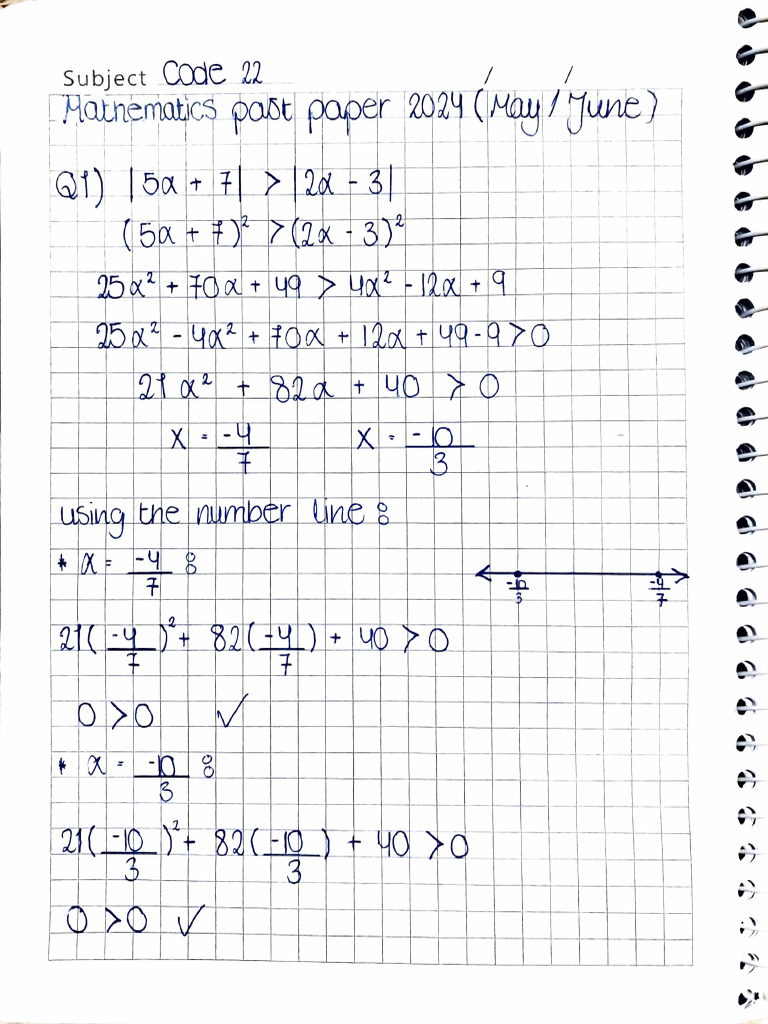 Subject Code 22
Mathematics past paper 2024 (May / June)
Q1) |5x + 7| > |2x - 3|
(5x + 7)² > (2x - 3)²
25x² + 70x + 49 > 4x² - 12x + 9
25x² - 4x² + 70x + 12x + 49 - 9 > 0
21x² + 82x + 40 > 0
x = -4/7 x = -10/3
using the number line :
* x = -4/7 :
-10/3 -4/7
21(-4/7)² + 82(-4/7) + 40 > 0
0 > 0 ✓
* x = -10/3 :
21(-10/3)² + 82(-10/3) + 40 > 0
0 > 0 ✓